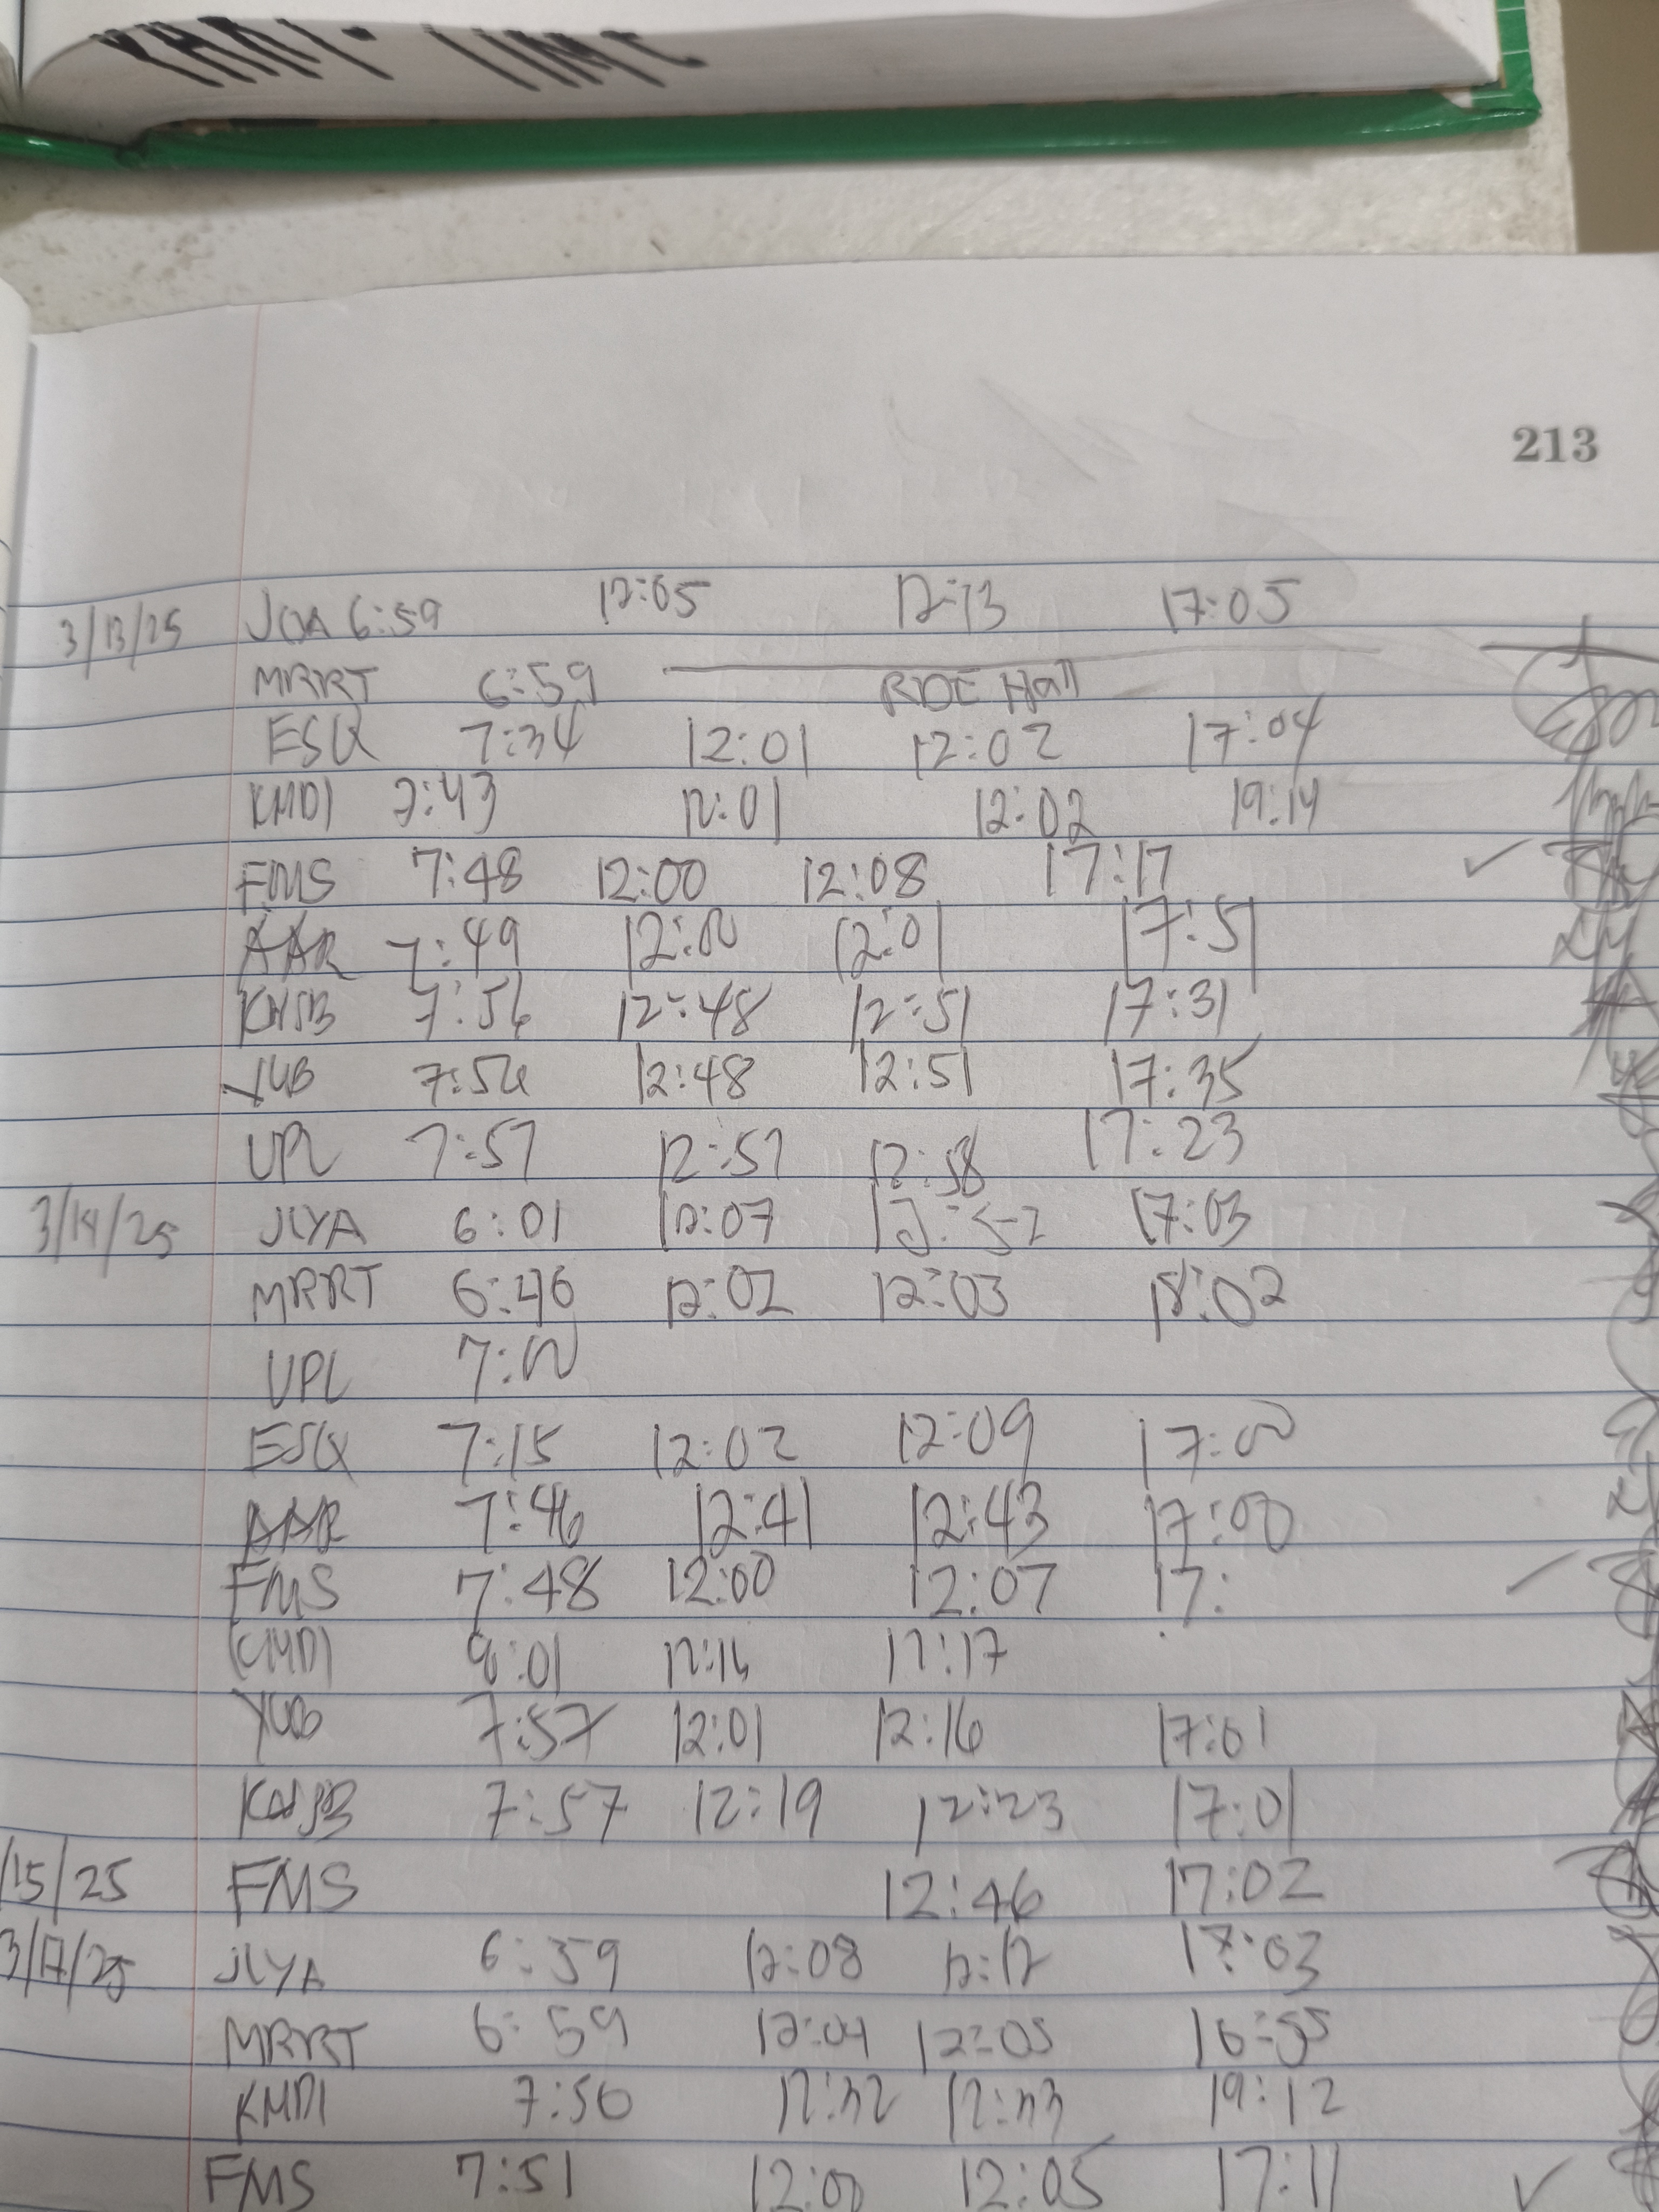 213
3/13/25 JCYA 6:59 12:05 12:13 17:05
MRRT 6:59 RDE Hall
ESQ 7:34 12:01 12:02 17:04
KMDI 7:43 12:01 12:02 19:14
FMS 7:48 12:00 12:08 17:17 ✓
AAR 7:49 12:00 12:01 17:51
7:56 12:48 12:51 17:31
7:56 12:48 12:51 17:35
UPL 7:57 12:57 12:58 17:23
3/14/25 JLYA 6:01 12:07 12:52 17:03
MRRT 6:46 12:02 12:03 18:02
UPL 7:00
ESQ 7:15 12:02 12:09 17:00
AAR 7:46 12:41 12:43 17:00
FMS 7:48 12:00 12:07 17:
KMDI 8:01 12:16 12:17
7:57 12:01 12:16 17:01
7:57 12:19 12:23 17:01
/15/25 FMS 12:46 17:02
3/17/25 JLYA 6:59 12:08 12:12 17:03
MRRT 6:59 12:04 12:05 16:55
KMDI 7:50 12:32 12:33 19:12
FMS 7:51 12:00 12:05 17:11 ✓